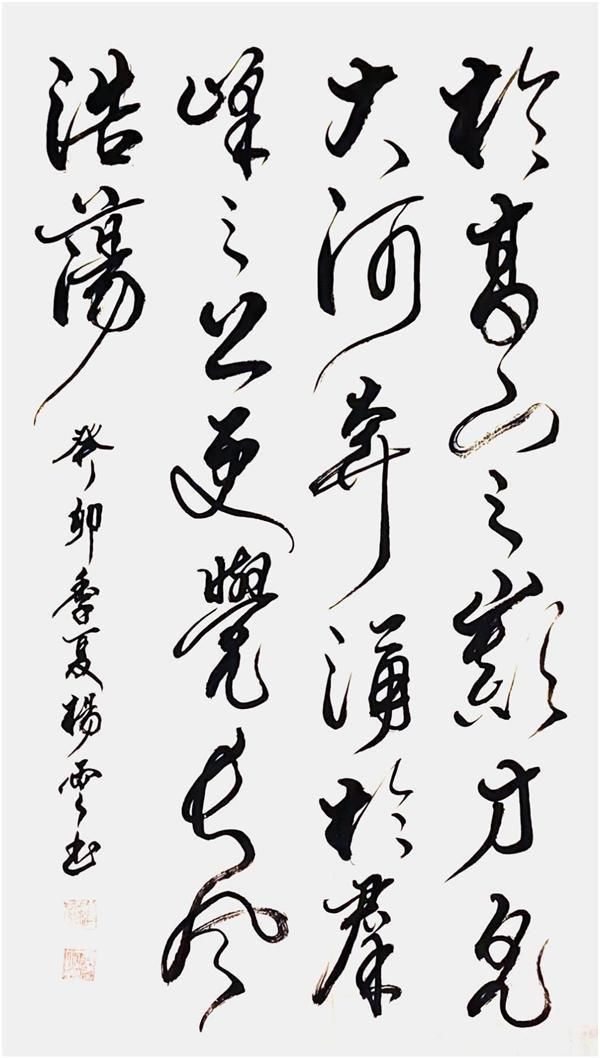 於高山之巔方見
大河奔涌於羣
峰之上更覺長風
浩蕩
癸卯季夏楊雲書